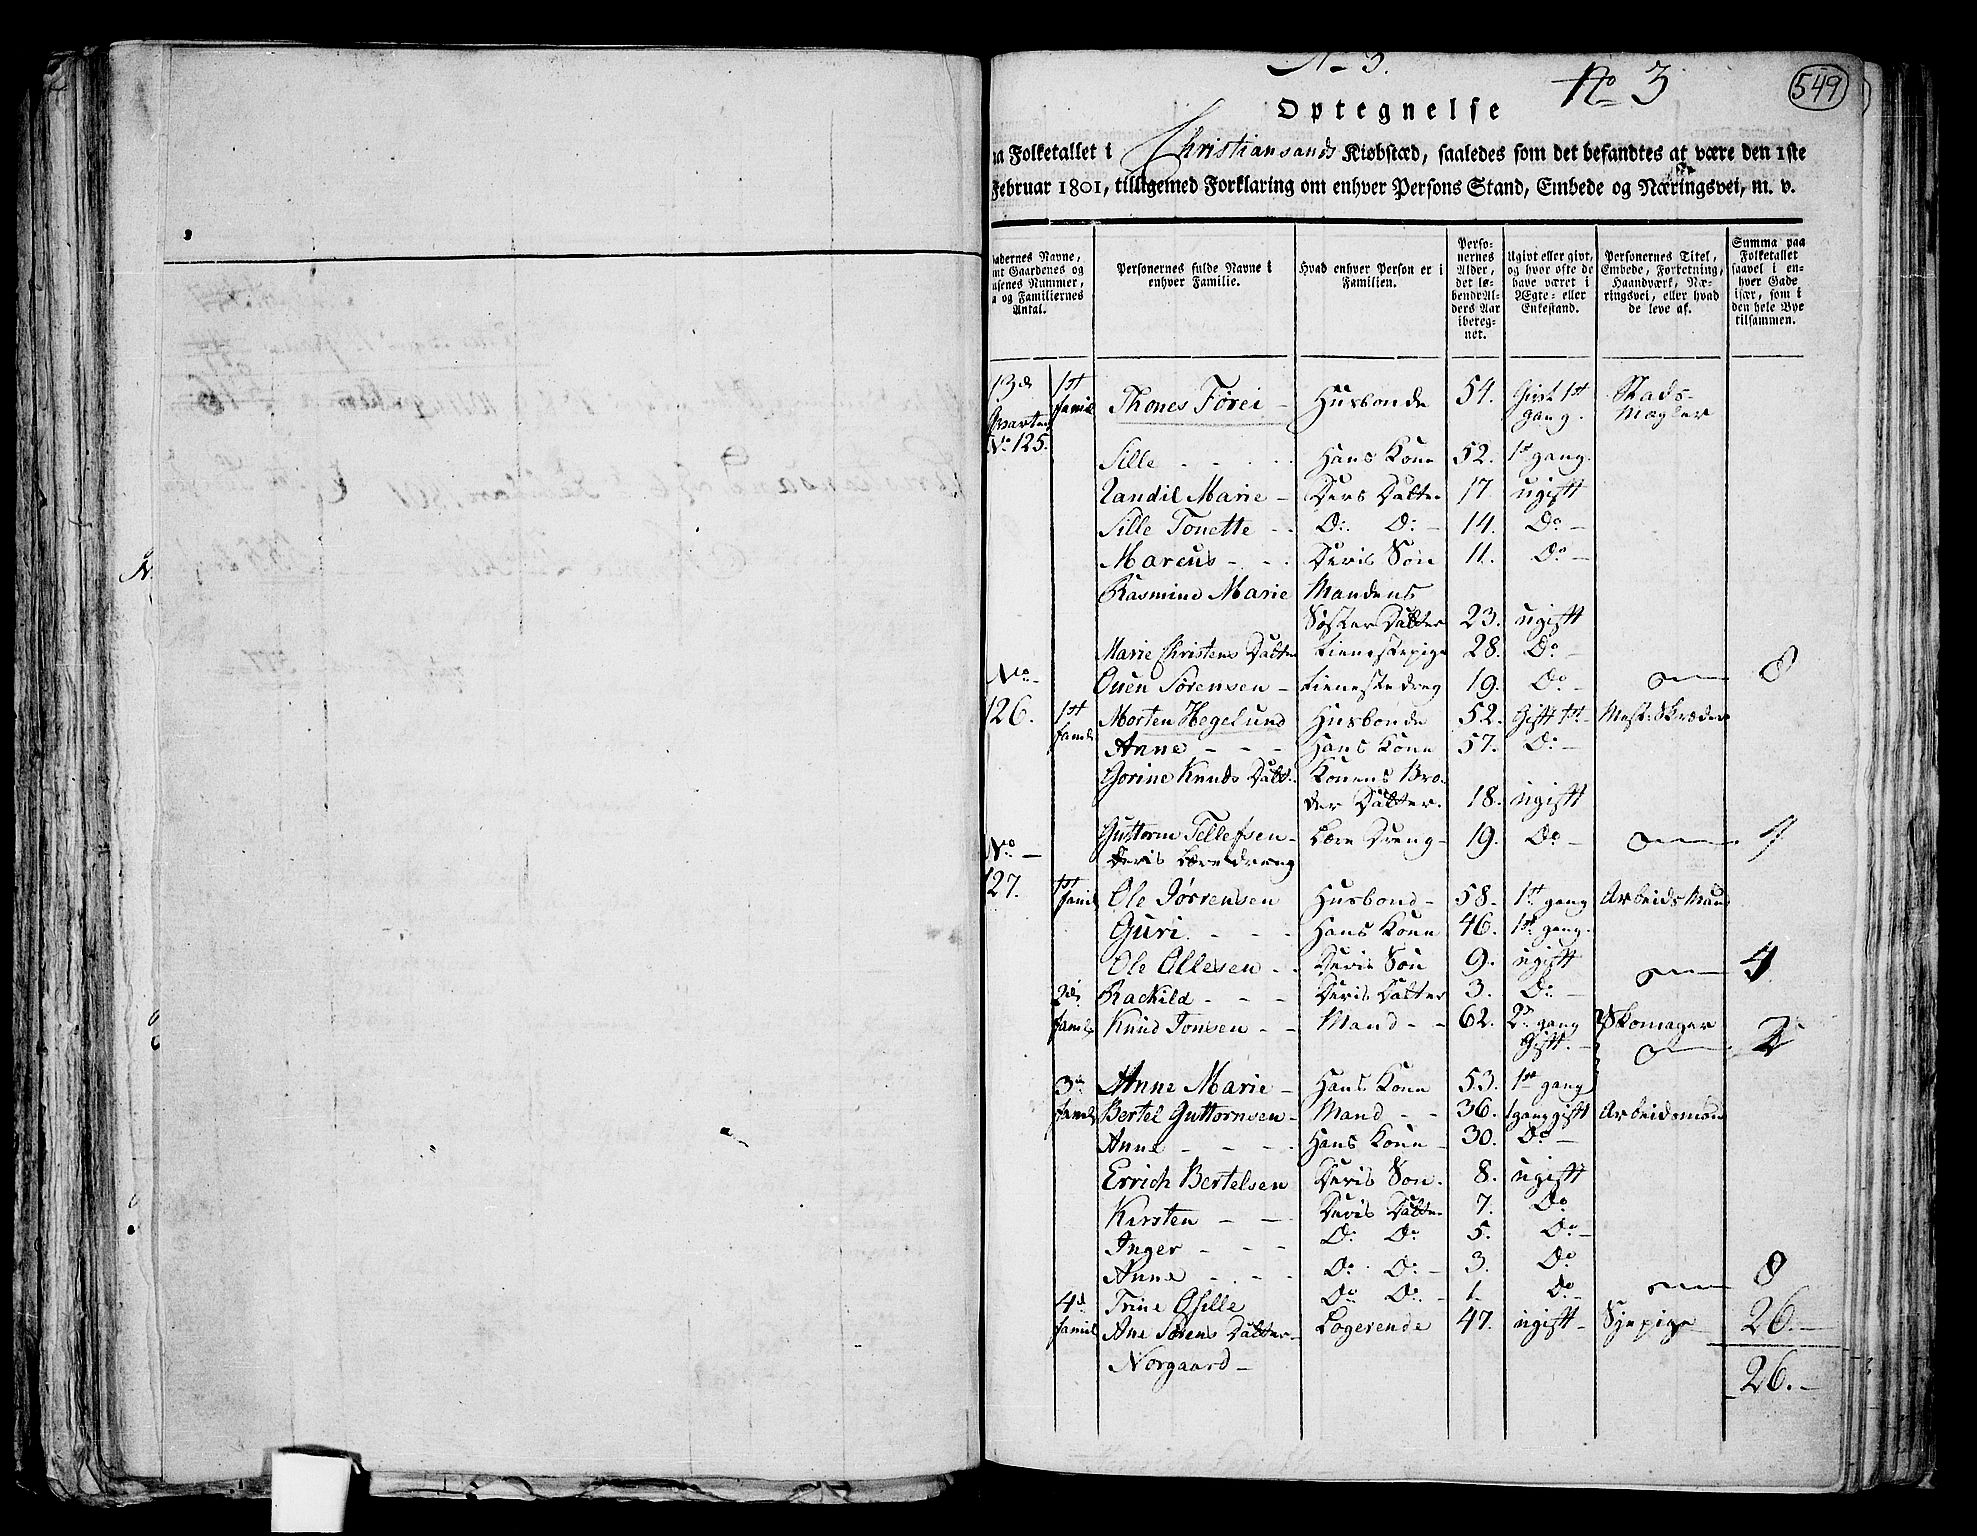 No 3.
No 3
549
Optegnelse
aa Folketallet i Christiansands Kiøbstæd, saaledes som det befandtes at være den 1ste
Februar 1801, tilligemed Forklaring om enhver Persons Stand, Embede og Næringsvei, m. v.
adernes Navne, mt Gaardenes og usenes Nummer, a og Familiernes Antal.
Personernes fulde Navne i enhver Familie.
Hvad enhver Person er i Familien.
Personernes Alder, det løbende Alders Aar iberegnet.
Ugivt eller givt, og hvor ofte de have været i Ægte- eller Enkestand.
Personernes Titel, Embede, Forretning, Haandværk, Næringsvei, eller hvad de leve af.
Summa paa Folketallet saavel i enhver Gade især, som i den hele Bye tilsammen.
13de Qvarteer No 125. 1st famil Thones Førei - Husbonde 54. Givt 1st gang. Stads-Mægler
Sille - - - Hans Kone 52. 1st gang.
Randil Marie - Deris Datter 17. ugift
Sille Tonette - - Do Do - 14. Do -
Marcus - - - Deris Søn 11. Do -
Rasmine Marie Mandens Søster Datter 23. ugift
Marie Christens Datter tienestepige 28. Do -
Ouen Sørensen - tienestedreng 19. Do - 8
No 126. 1st famil Morten Hegelund Husbonde 52. Gift 1st - Mest: Skræder
Anne - - - Hans Kone 57. Do -
Gorine Knuds Datt. Konens Broder Datter. 18. ugift
Guttorm Tellefsen - Lære Dreng - 19. Do - 4
deris Lære dreng
No 127. 1st famil Ole Jørrensen Husbond - 58. 1st gang Arbeids Mand
Guri - - - Hans Kone 46. 1st gang.
Ole Ollesen - - Deris Søn 9. ugift 4
Rackild - - - Deris Datter 3. Do -
2de famil Knud Tonsen - - Mand - - 62. 2n gang Gift. - Skomager 2
Anne Marie - Hans Kone 53. 1st gang
3de famil Bertel Guttormsen - Mand - - 36. 1 gang gift Arbeidsman
Anne - - - Hans Kone - 30. Do -
Errich Bertelsen Deris Søn. 8. ugift
Kirsten - - Deris Datter 7. Do
Inger - - - Do Do 5. Do -
Anne - - - Do Do - 3. Do
Trine Osille Do Do - 1. do - 8
4de famil Ane Sørens Datter - Logerende 47. ugift - Sypige 26. -
Norgaard -
26. -